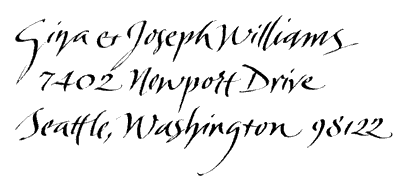 Gina & Joseph Williams
7402 Newport Drive
Seattle, Washington 98122